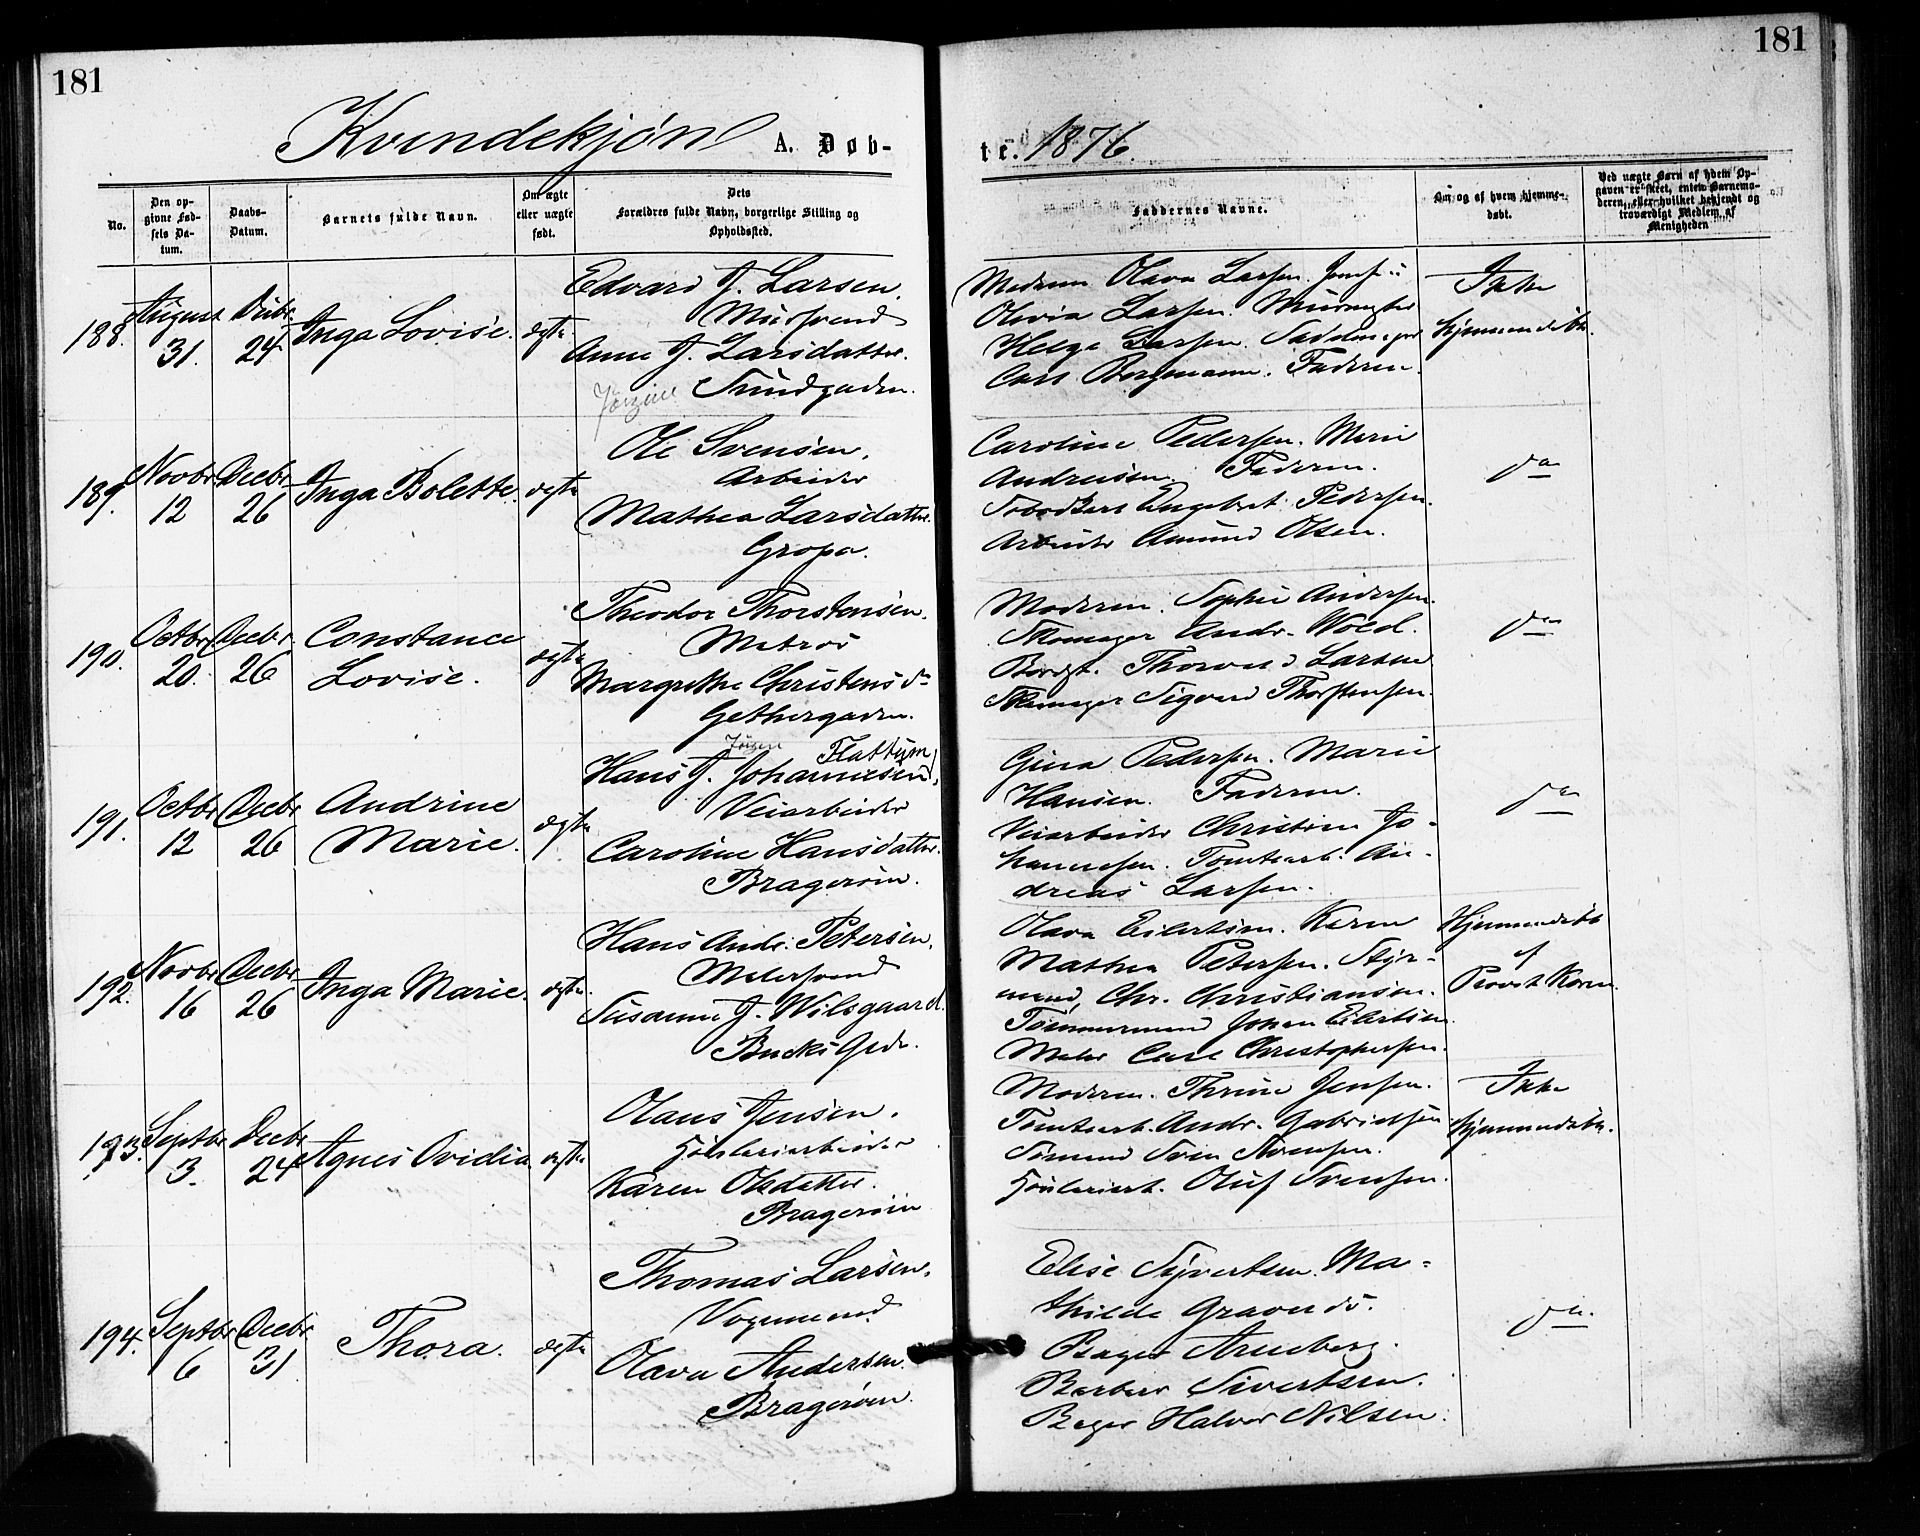 181
181
Kvindekjøn A. Døb-
te. 1876.
No.
Den op-
givne Fød-
sels Da-
tum.
Daabs-
Datum.
Barnets fulde Navn.
Om ægte
eller uægte
født.
Dets
Forældres fulde Navn, borgerlige Stilling og
Opholdssted.
Faddernes Navne.
Om og af hvem hjemme-
døbt.
Ved uægte Børn af hvem Op-
gaven er skeet, enten Barnemo-
deren, eller hvilket bekjendt og
troværdigt Medlem af
Menigheden
188.
August
31.
Decbr.
24
Inga Lovise.
ægte
Edvard J. Larsen.
Mursvend
Anne J. Larsdatter.
Jørgine Sundgaden.
Moderen Olava Larsen.
Olivia Larsen.
Helge Larsen.
Carl Bergmann. Faderen.
Ikke
hjemmedøbt.
189.
Novbr
12
Decbr.
26
Inga Bolette.
ægte
Ole Svensen.
Arbeider
Mathea Larsdatter.
Gropa.
Caroline Pedersen. Marie
Andreasen. Faderen.
Engebret Pedersen.
Arbeider Amund Olsen.
do
190.
Octbr
20.
Decbr.
26
Constance
Lovise.
ægte
Theodor Thorstensen.
Matros
Margrethe Christensdr
Gethergaden.
Moderen. Sophie Andersen.
Skomager Andr. Wold.
Larsen
Skomager Sigvard Thorstensen.
do
191.
Octbr
12
Decbr
26
Andrine
Marie.
ægte
Jørgen Flattum
Hans J. Johannesen,
Veiarbeider
Caroline Hansdatter.
Bragerøen.
Gina Pedersen. Marie
Hansen. Faderen.
Veiarbeider Christian Jo-
hannesen. Tomtearb. An-
dreas Larsen.
do
192.
Novbr
16
Decbr.
26
Inga Marie.
ægte.
Hans Andr. Petersen.
Malersvend
Susanne J. Wilsgaard.
Bucks Gade.
Olava Eilertsen. Karen
Mathea Petersen. Styr-
mand, Chr. Christiansen.
Tømmermand Johan Eilertsen.
Maler Carl Christophersen.
Hjemmedøbt
af
Provst Koren.
193.
Septbr
3.
Decbr
24
Agnes Ovidia
ægte
Olaus Jensen.
Høvleriarbeider
Karen Olsdatter.
Bragerøen
Moderen. Thrine Jensen.
Tomtearb. Andr. Gabrielsen
Sømand Sven Svensen.
Høvleriarb. Oluf Svensen.
Ikke
hjemmedøbt.
194.
Septbr
6
Decbr.
31
Thora.
ægte
Thomas Larsen.
Vognmand
Olava Andersen.
Bragerøen.
Elise Syvertsen. Ma-
thilde Gravends.
Bager Arneberg.
Barber Sivertsen.
Bager Halvor Nilsen.
do